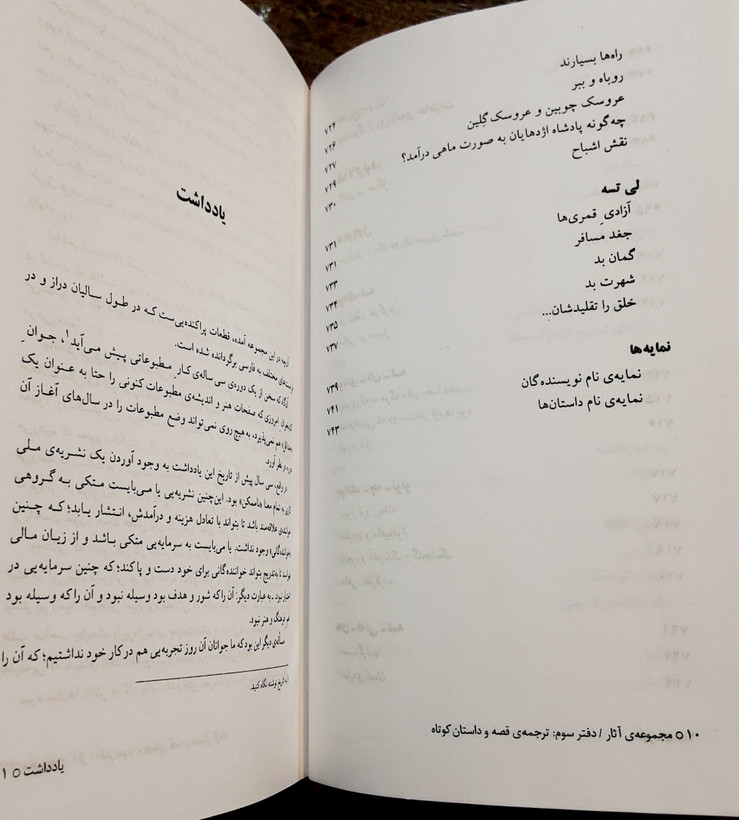 راه‌ها بسیارند
روباه و ببر ۷۲۴
عروسک چوبین و عروسک گِلین ۷۲۶
چه‌گونه پادشاه اژدهایان به صورت ماهی درآمد؟ ۷۲۷
نقش اشباح ۷۲۹
۷۳۰
لی تسه
آزادیِ قمری‌ها ۷۳۱
جغد مسافر ۷۳۱
گمان بد ۷۳۳
شهرت بد ۷۳۴
خلق را تقلیدشان... ۷۳۵
۷۳۷
نمایه‌ها
نمایه‌ی نام نویسنده‌گان ۷۳۹
نمایه‌ی نام داستان‌ها ۷۴۱
۷۴۳
۱۰ ○ مجموعه‌ی آثار / دفتر سوم: ترجمه‌ی قصه و داستان کوتاه
یادداشت
آن‌چه در این مجموعه آمده، قطعات پراکنده‌یی‌ست که در طول سالیان دراز و در
مختلف به فارسی برگردانده شده است.
سخن از یک دوره‌ی سی ساله‌ی کارِ مطبوعاتی پیش می‌آید۱، جوانِ
امروزی که صفحات هنر و اندیشه‌ی مطبوعات کنونی را حتا به عنوان یک
هم نمی‌پذیرد، به هیچ روی نمی‌تواند وضع مطبوعات را در سال‌های آغاز آن
در نظر آورد.
در واقع، سی سال پیش از تاریخ این یادداشت به وجود آوردن یک نشریه‌ی ملی
به تمام معنا «ناممکن» بود. این‌چنین نشریه‌یی یا می‌بایست متکی به گروهی
علاقه‌مند باشد تا بتواند با تعادل هزینه و درآمدش، انتشار یابد؛ که چنین
وجود نداشت. یا می‌بایست به سرمایه‌یی متکی باشد و از زیان مالی
تا به‌تدریج بتواند خواننده‌گانی برای خود دست و پا کند؛ که چنین سرمایه‌یی در
نبود ـ به عبارت دیگر: آن را که شور و هدف بود وسیله نبود و آن را که وسیله بود
هنر نبود.
مسأله‌ی دیگر این بود که ما جوانان آن روز تجربه‌یی هم در کار خود نداشتیم؛ که آن را
به تاریخ نوشته نگاه کنید.
یادداشت ○ ۱